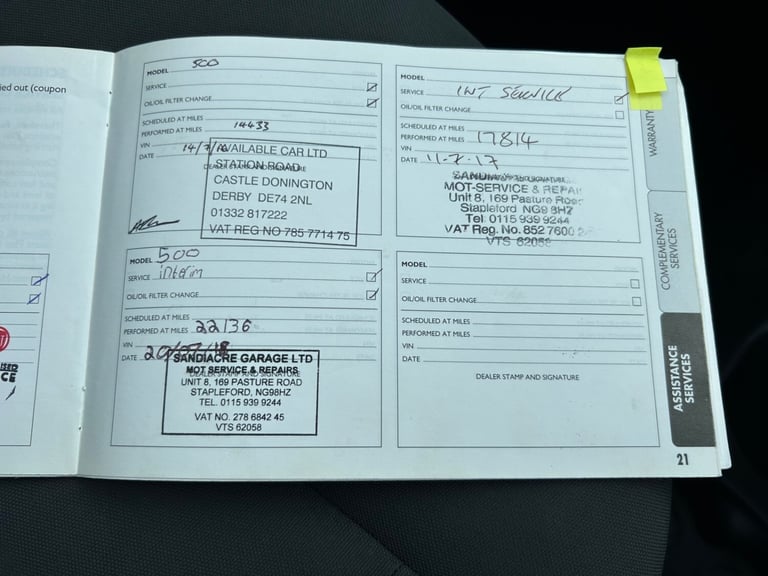 ied out (coupon
MODEL 500
SERVICE
OIL/OIL FILTER CHANGE
SCHEDULED AT MILES
PERFORMED AT MILES 14433
VIN
DATE 14/7/
DEALER STAMP AND SIGNATURE
AVAILABLE CAR LTD
STATION ROAD
CASTLE DONINGTON
DERBY DE74 2NL
01332 817222
VAT REG NO 785 7714 75
MODEL
SERVICE INT SERVICE
OIL/OIL FILTER CHANGE
SCHEDULED AT MILES
PERFORMED AT MILES 17814
VIN
DATE 11-7-17
MOT-SERVICE & REPAI
Unit 8, 169 Pasture Road
Stapleford NG9 8HZ
Tel: 0115 939 9244
VAT Reg. No. 852 7600 2
VTS 62058
MODEL 500
SERVICE interim
OIL/OIL FILTER CHANGE
SCHEDULED AT MILES
PERFORMED AT MILES 22136
VIN
DATE 20/07/18
SANDIACRE GARAGE LTD
MOT SERVICE & REPAIRS
DEALER STAMP AND SIGNATURE
UNIT 8, 169 PASTURE ROAD
STAPLEFORD, NG98HZ
TEL. 0115 939 9244
VAT NO. 278 6842 45
VTS 62058
MODEL
SERVICE
OIL/OIL FILTER CHANGE
SCHEDULED AT MILES
PERFORMED AT MILES
VIN
DATE
DEALER STAMP AND SIGNATURE
WARRANTY
COMPLEMENTARY
SERVICES
ASSISTANCE
SERVICES
21